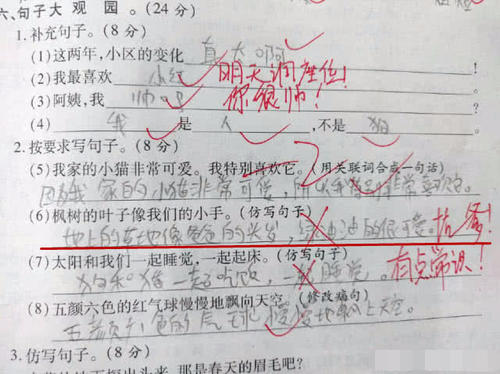 六、句子大观园。(24分)
1.补充句子。(8分)
(1)这两年,小区的变化真大啊!
(2)我最喜欢小红! 明天调座位!
(3)阿姨,我帅吗? 你很帅!
(4)我是人,不是狗
2.按要求写句子。(8分)
(5)我家的小猫非常可爱。我特别喜欢它。(用关联词合成一句话)
因为我家的小猫非常可爱,所以我特别非常喜欢。
(6)枫树的叶子像我们的小手。(仿写句子)
地上的草地像爸爸的光头,绿油油的很可爱。坑爹!
(7)太阳和我们一起睡觉,一起起床。(仿写句子)
狗和猪一起吃饭,睡觉。 有点常识!
(8)五颜六色的红气球慢慢地飘向天空。(修改病句)
五颜六色的气球慢慢地飘上天空。
3.仿写句子。(8分)
那是春天的眉毛吧?